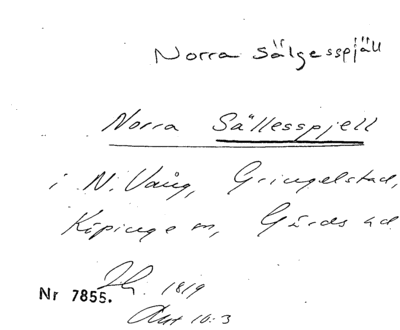 Norra Sälgesspjäll
Norra Sällesspjell
i N. Vång, Gringelstad,
Köpinge m, Gärds hd
Zh. 1819
Akt 10:3
Nr 7855.